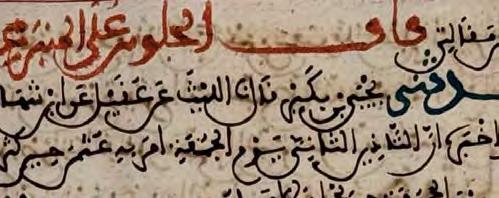 باب الجلوس على المنبر
حدثني يحيى بن بكير قال نا الليث عن عقيل عن ابن شها
اخبره ان التاذين الثاني يوم الجمعة امر به عثمن حين كثر